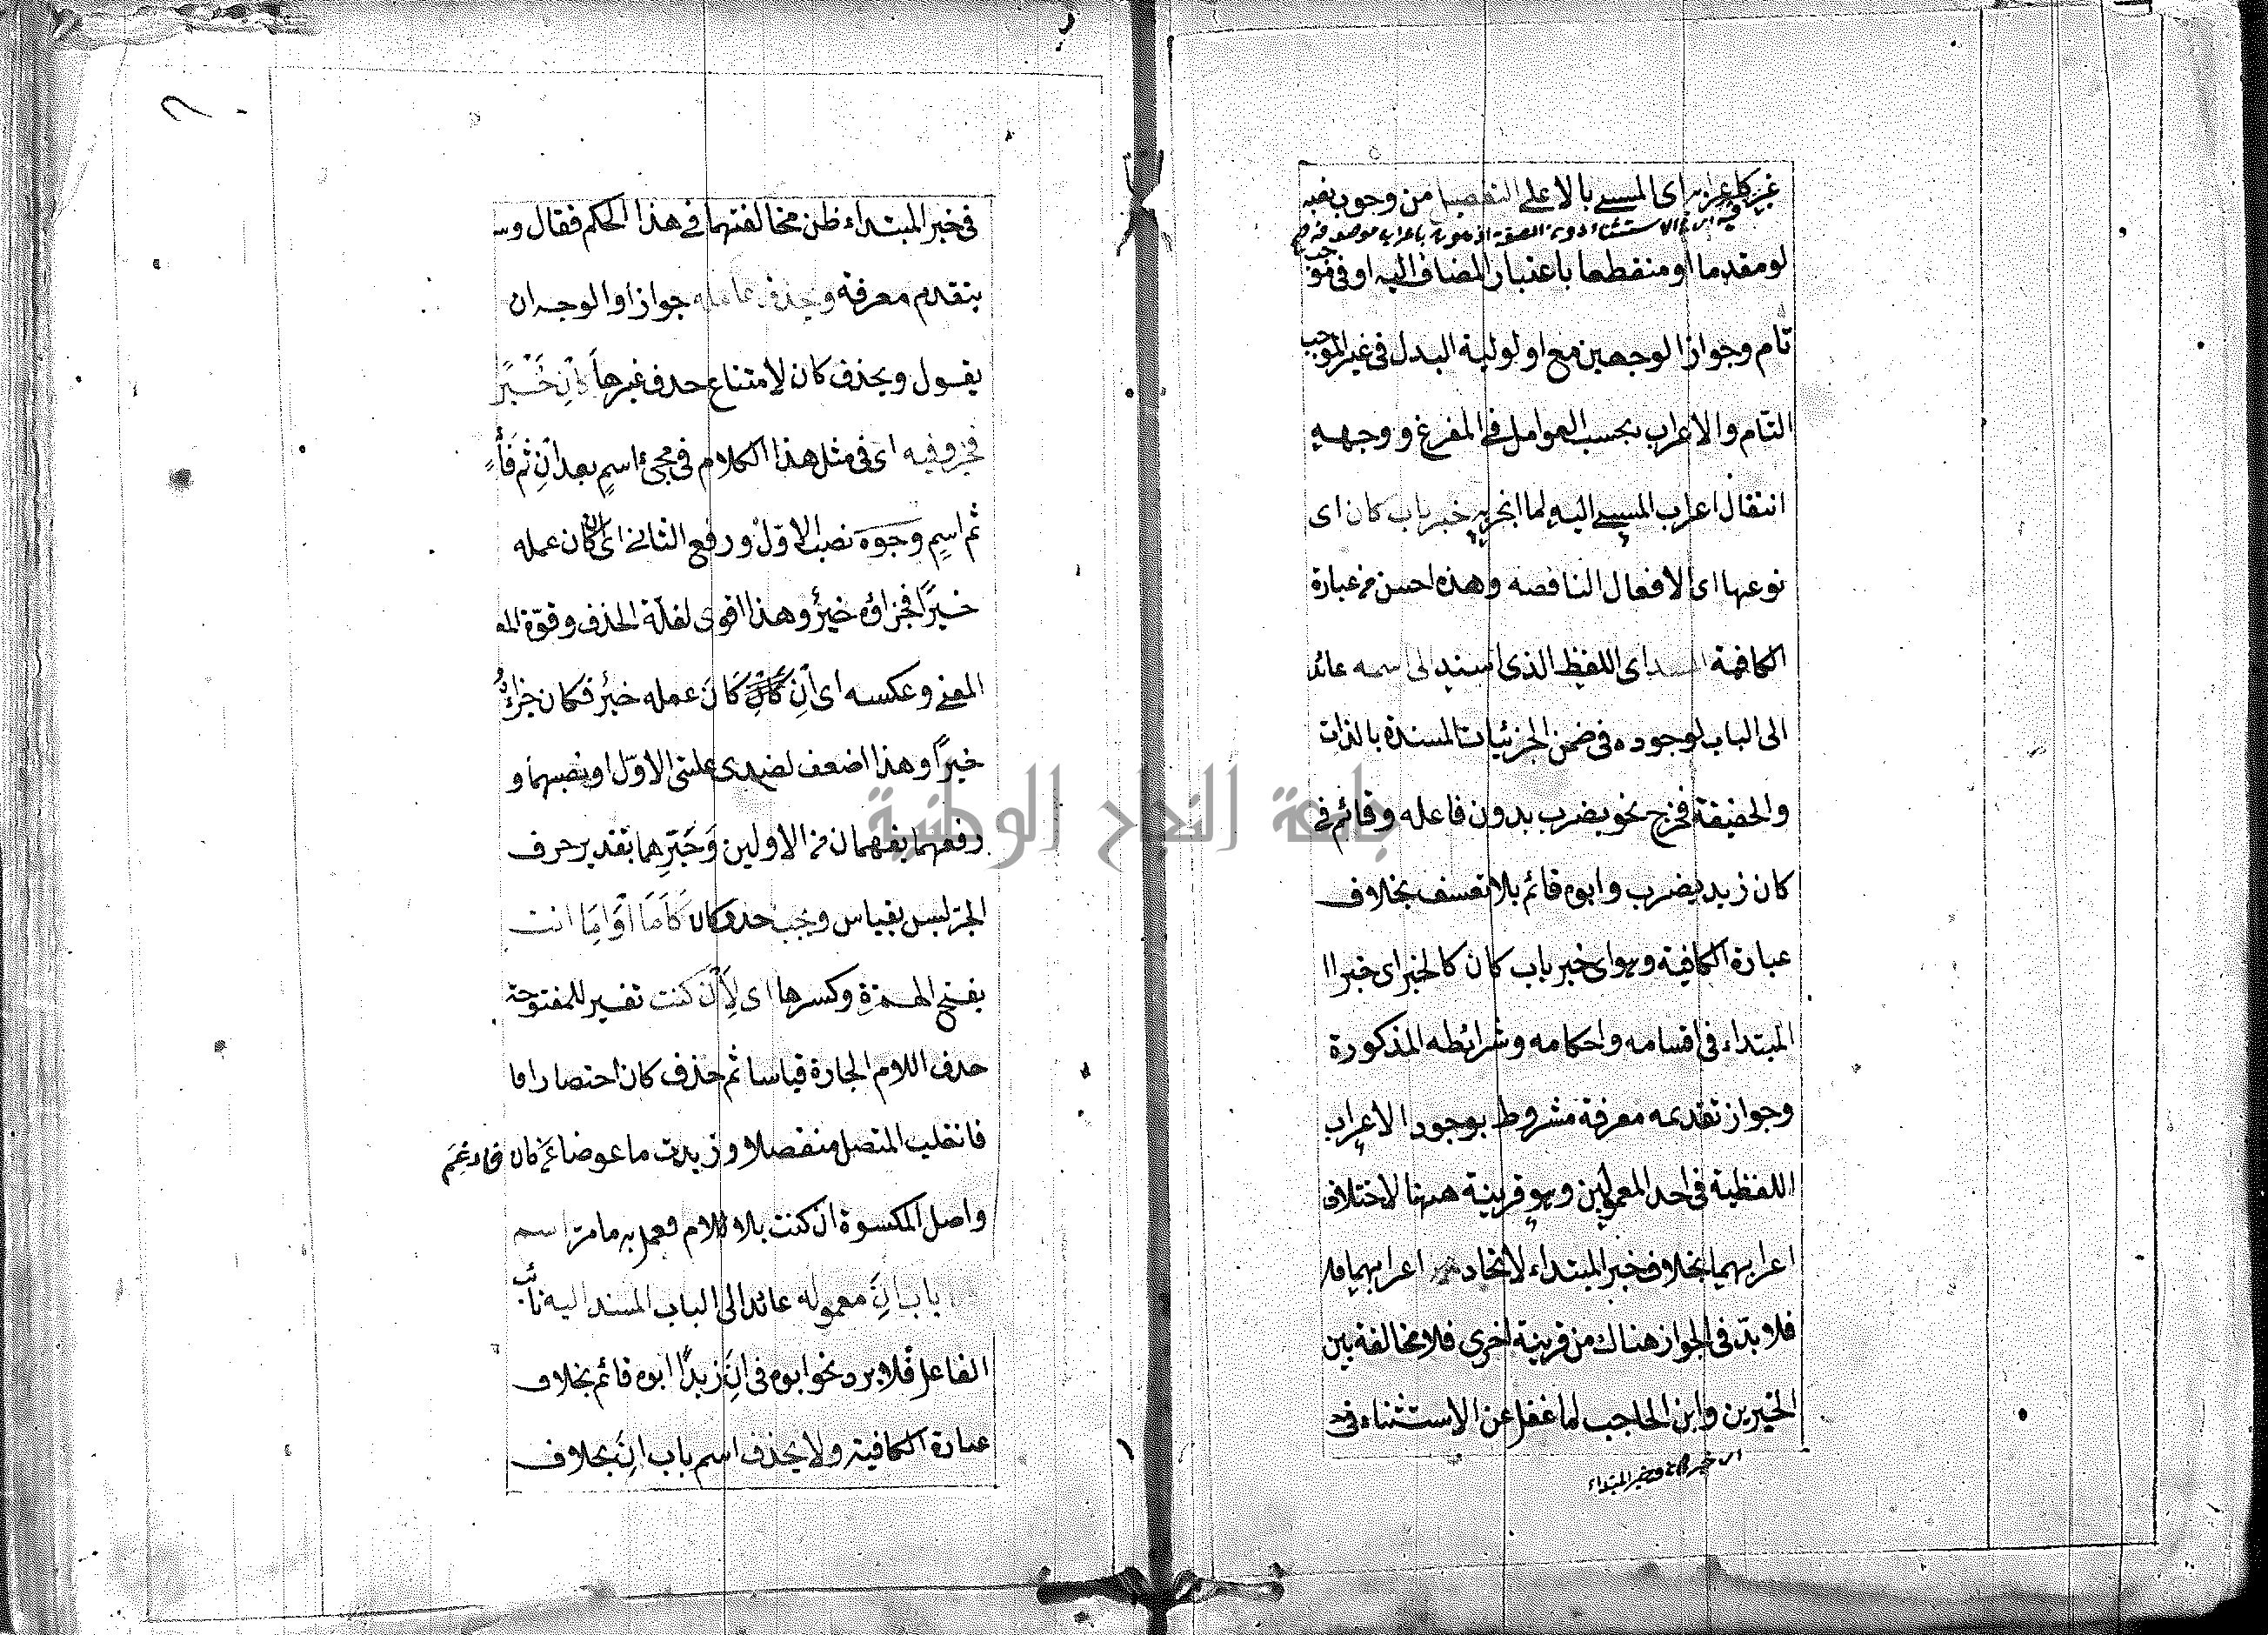 غير كاعرابه اى المستثنى بالا على التفصيل من وجوب نصبه
فيه الاستثناء دون الصفة
لو مقدما او منقطعا باعتبار المضاف اليه او فى موجب
تام وجواز الوجهين مع اولوية البدل فى غير الموجب
التام والاعراب بحسب العوامل فى المفرغ ووجهه
انتقال اعراب المستثنى اليه لما انجر به خبر باب كان اى
نوعها اى الافعال الناقصه وهذه احسن من عبارة
الكافية المسند اى اللفظ الذى اسند الى اسمه عائد
الى الباب لوجوده فى ضمن الجزئيات المسندة بالذات
والحقيقة فخرج نحو يضرب بدون فاعله وقائم فى
كان زيد يضرب وابوه قائم بلا تعسف بخلاف
عبارة الكافية وهو اى خبر باب كان كالخبر اى خبر ا
المبتداء فى اقسامه واحكامه وشرائطه المذكورة
وجواز تقديمه معرفة مشروط بوجود الاعراب
اللفظية فى احد المعمولين وهو قرينة ههنا لاختلاف
اعرابهما بخلاف خبر المبتداء لاتحاد اعرابهما فلا
فلا بد فى الجواز هناك من قرينة اخرى فلا مخالفة بين
الخبرين وابن الحاجب لما غفل عن الاستثناء فى
وخبر المبتداء
فى خبر المبتداء ظن مخالفتهما فى هذا الحكم فقال و
يتقدم معرفة ويحذف عامله جوازا والوجه ان
يقول ويحذف كان لامتناع حذف غيرها ان خَيْرًا
فخير وفيه اى فى مثل هذا الكلام فى مجئ اسمٍ بعد انِ ثم فاءٍ
ثم اسمٍ وجوه نصب الاوّل ورفع الثانى اى ان كان عمله
خيرًا فجزاؤه خيرٌ وهذا اقوى لقلة الحذف وقوة
المعنى وعكسه اى اِن كَانَ عمله خيرٌ فكان جزاؤُه
خيرًا وهذا اضعف لضدى علتى الاوّل او نصبهما و
رفعهما يفهمان من الاولين وَجَرّهما بتقدير حرف
الجرّ ليس بقياس ويجب حذف كان كَاَمَّا اَوْ اِمَّا انت
بفتح الهمزة وكسرها اى لِاَنْ كنت تفسير للمفتوحة
حذف اللام الجارة قياسا ثم حذف كان اختصارا فا
فانقلب المتصل منفصلا وزيدت ما عوضا عن كان فادغم
واصل المكسورة ان كنت بلا لام فعمل به ما مرّ اسم
باب اِنَّ معموله عائد الى الباب المسند اليه نائب
الفاعل فلا يرد نحو ابوه فى اِنّ زيدًا ابوه قائم بخلاف
عبارة الكافية ولا يحذف اسم باب اِنَّ بخلاف
جامعة النجاح الوطنية